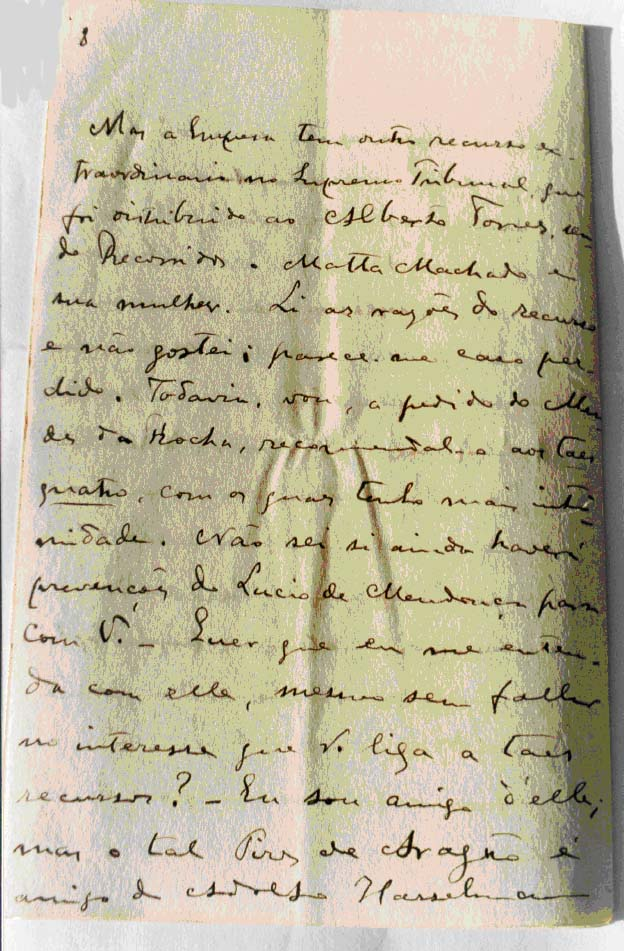 8
Mas a Empresa tem outro recurso ex-
traordinario no Supremo Tribunal, que
foi distribuido ao Alberto Torres, sen-
do Recorridos. Matta Machado e
sua mulher. Li as razões do recurso
e não gostei; parece-me caso per-
dido. Todavia, vou, a pedido do Men-
des da Rocha, recommendal-o aos taes
quatro, com os quaes tenho mais inti-
midade. Não sei si ainda haverá
prevenções do Lucio de Mendonça para
com V. – Quer que eu me enten-
da com elle, mesmo sem fallar
no interesse que V. liga a taes
recursos? – Eu sou amigo d'elle;
mas o tal Pires de Aragão é
amigo de Adolfo Hasselmann